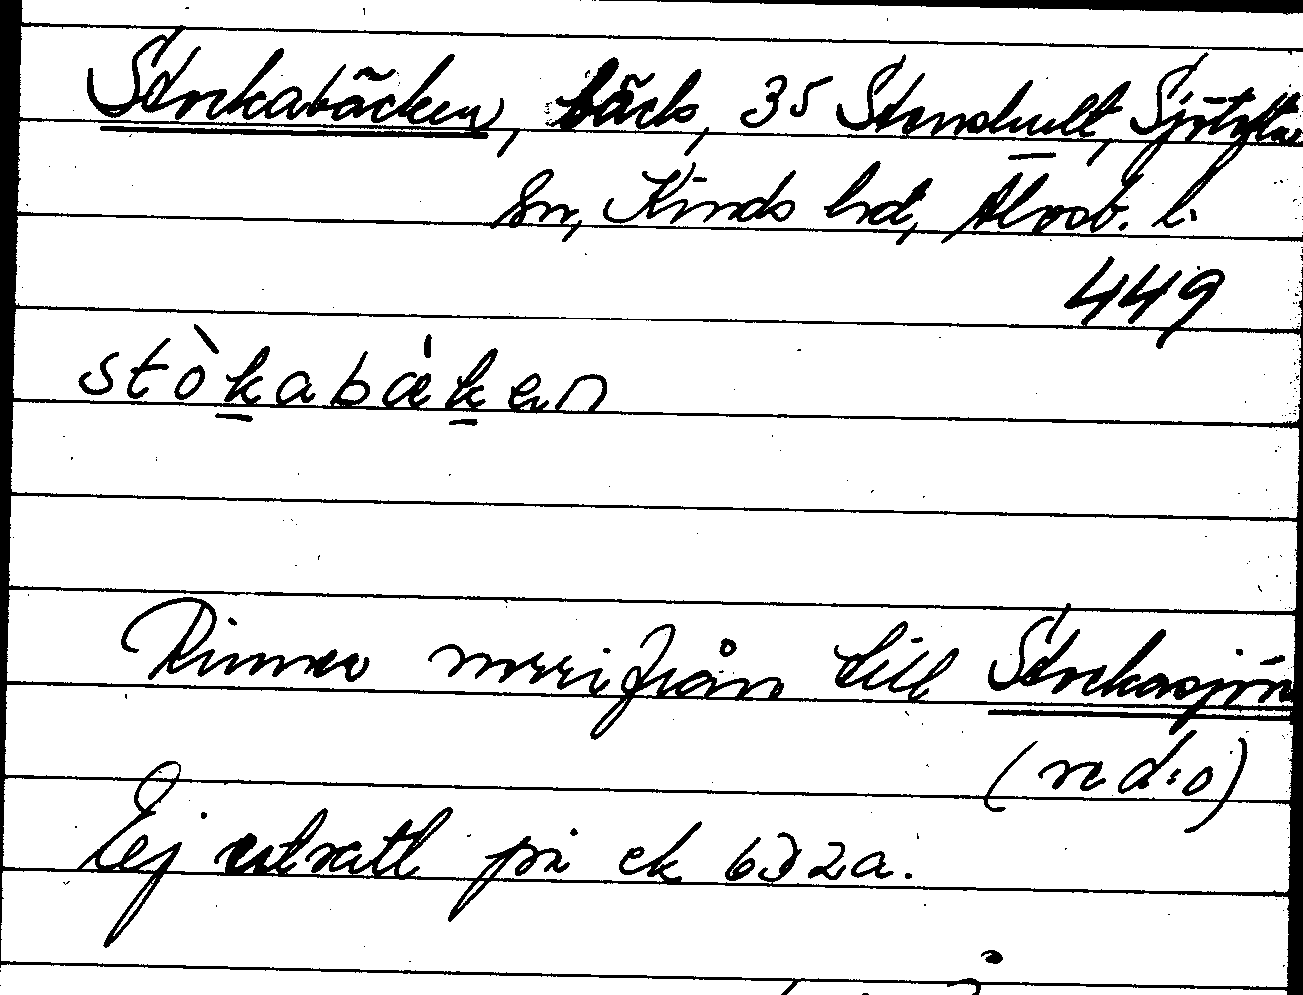 Stockabäcken, bäck, 35 Stenshult, Sjötofta
sn, Kinds hd, Älvsb. l.
449
stòkabæ̀ken
Rinner norrifrån till Stockasjön
(se d:o)
Ej utsatt på ek 6D2a.